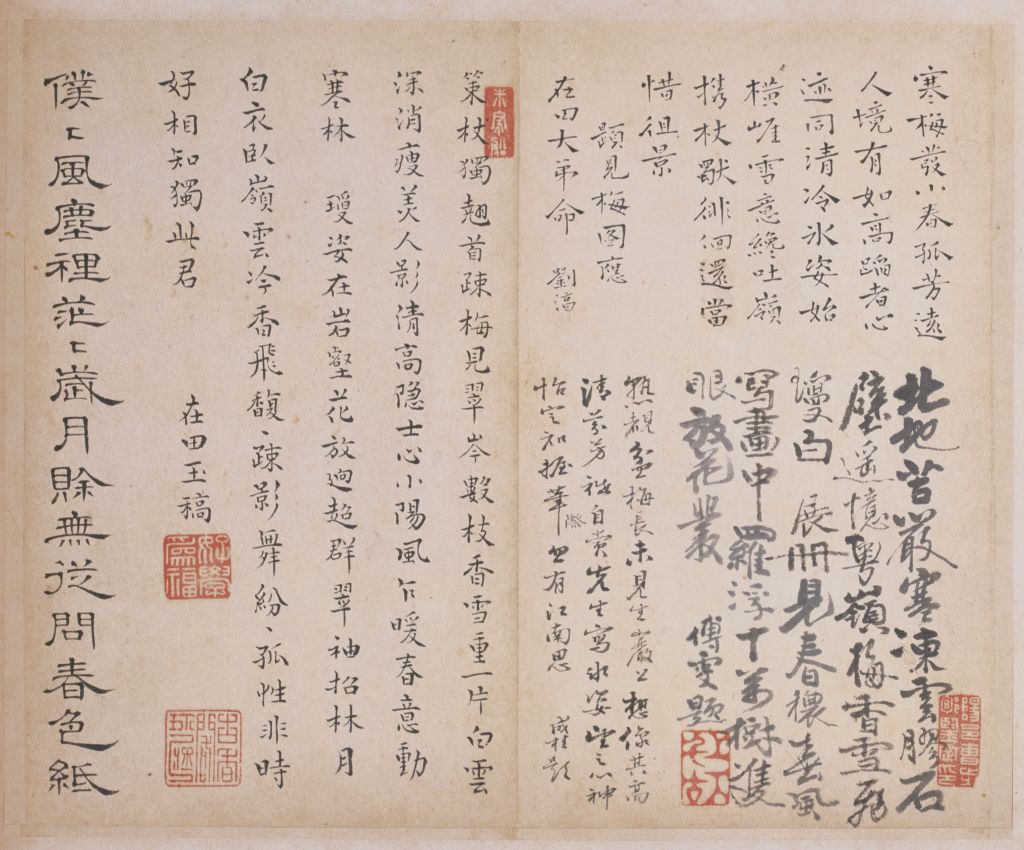 寒梅發小春孤芳遠
人境有如高蹈者心
迹同清冷氷姿始
橫崖雪意纔吐嶺
攜杖獸徘徊還當
惜徂景
題見梅圖應
在田大弟命 劉滈
北地苦嚴寒凍雲膠石
壁遥憶粵嶺梅香雪飛
瓊白 展冊見春穠春風
寫畫中羅浮十萬樹隻
眼放花叢 傅雯題
熟覩盆梅長未見生巖上想像其高
清芬芳祗自賞先生寫氷姿坐忘神
怡定知握筆際忽有江南思
策杖獨翹首疎梅見翠岑數枝香雪重一片白雲
深消瘦美人影清高隐士心小陽風乍暖春意動
寒林 瓊姿在岩壑花放迥超群翠袖招林月
白衣臥嶺雲冷香飛馥〻疎影舞紛〻孤性非時
好相知獨此君
在田玉稿
好學為福
僕〻風塵裡茫〻歲月賒無從問春色紙